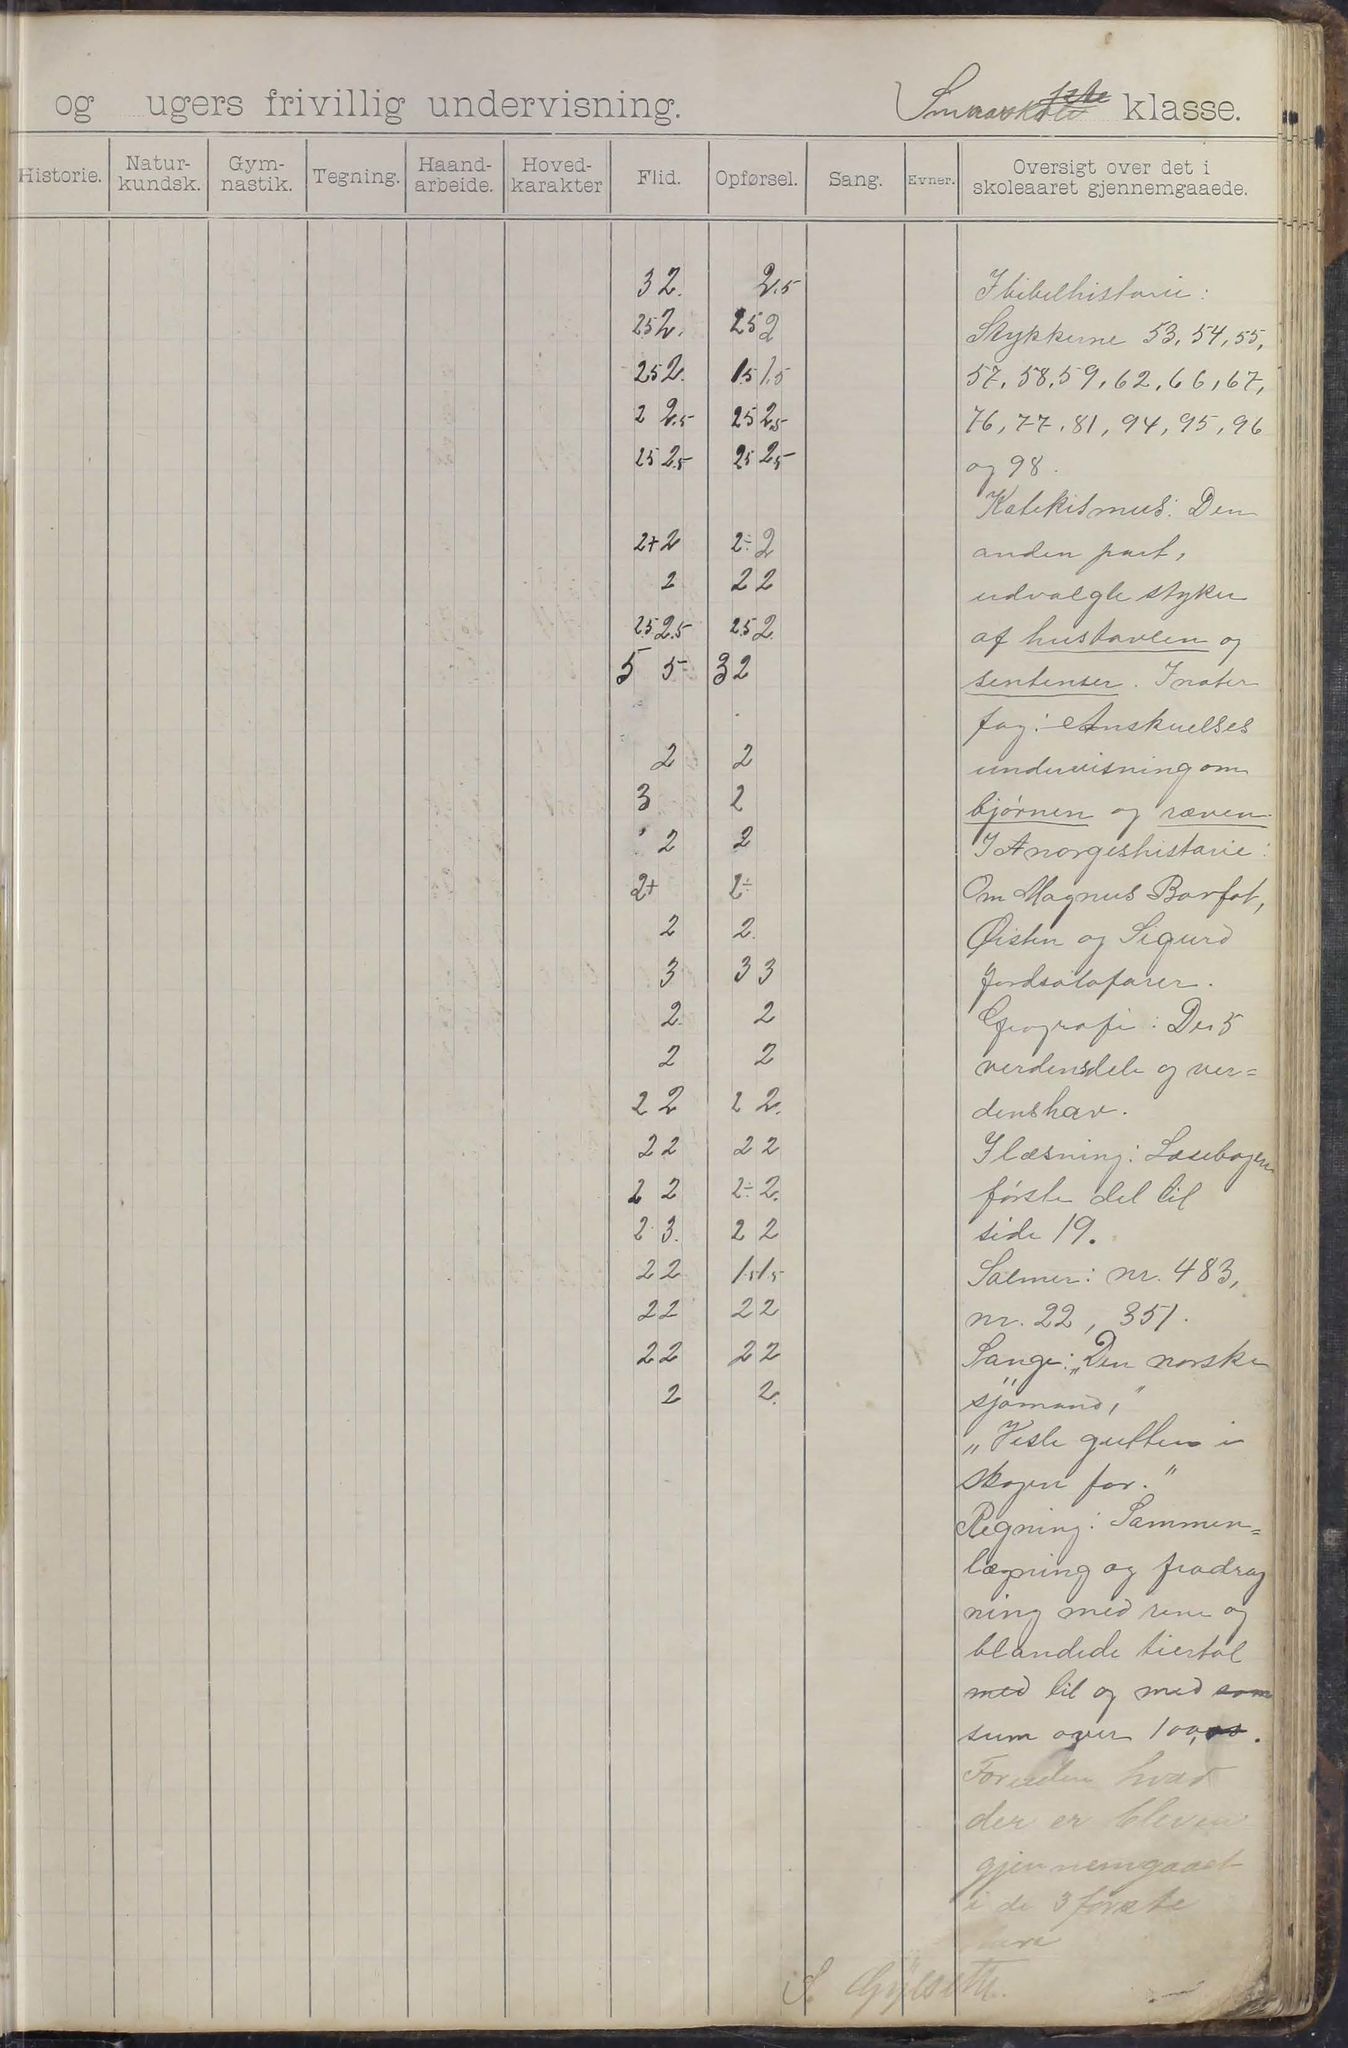 og ugers frivillig undervisning. Smaaskole klasse.
Historie. Natur-kundsk. Gym-nastik. Tegning. Haand-arbeide. Hoved-karakter Flid. Opførsel. Sang. Evner. Oversigt over det i
skoleaaret gjennemgaaede.
3 2. 2.5
25 2. 25 2
25 2. 1.5 1.5
2 2.5 25 2.5
25 2.5 25 2.5
2+ 2 2÷ 2
2 2 2
25 2.5 2.5 2
5 5 3 2
2 2
3 2
2 2
2+ 2÷
2 2.
3 3 3
2. 2
2 2
2 2 2 2.
2 2 2 2
2 2 2÷ 2.
2 3. 2 2
2 2 1.5 1.5
2 2 2 2
2 2 2 2
2 2.
I bibelhistorie:
Stykkerne 53, 54, 55,
57, 58, 59, 62, 66, 67,
76, 77, 81, 94, 95, 96
og 98.
Katekismus: Den
anden part,
udvalgte styker
af hustavlen og
sentenser. I
fag: Anskuelses
undervisning om
bjørnen og ræven.
I norgeshistorie:
Om Magnus Barfot,
Østen og Sigurd
Jordsalafarer.
Geografi: De 5
verdensdele og ver=
denshav.
I læsning: Læsebogen
første del til
side 19.
Salmer: nr. 483,
nr. 22, 351.
Sange: „Den norske
sjømand,"
„Vesle gutten i
skogen for."
Regning: Sammen=
lægning og fradrag
ning med rene og
blandede tiertal
med til og med som
sum over 100,00.
Foruden hvad
der er bleven
gjennemgaaet
i de 3 første
S. Gylseth.